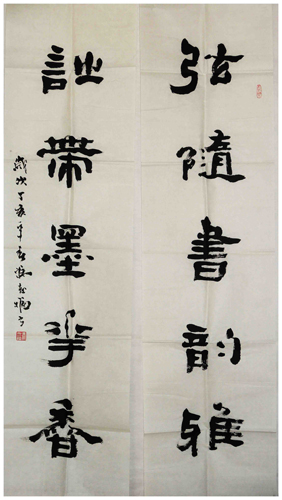 弦隨書韵雅
詩帶墨華香
歲次丁亥年